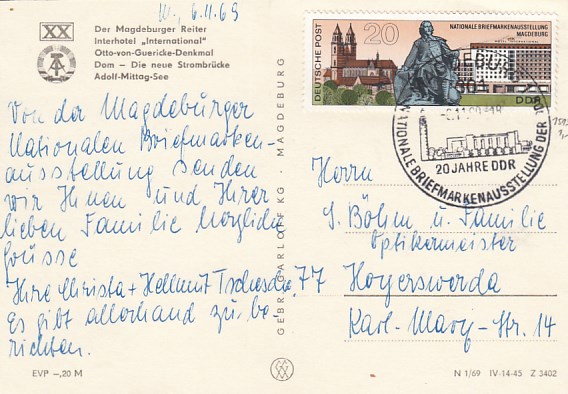 M., 6.11.69
XX
Der Magdeburger Reiter
Interhotel „International"
Otto-von-Guericke-Denkmal
Dom – Die neue Strombrücke
Adolf-Mittag-See
Von der Magdeburger
Nationalen Briefmarken-
ausstellung senden
wir Ihnen und Ihrer
lieben Familie herzliche
Grüsse
Ihre Christa + Hellmut
Es gibt allerhand zu be-
richten.
EVP –,20 M
GEBR. GARLOFF KG · MAGDEBURG
DEUTSCHE POST
20
NATIONALE BRIEFMARKENAUSSTELLUNG
MAGDEBURG
DDR
MAGDEBURG
301
-6.11.69-18
20 JAHRE DDR
NATIONALE BRIEFMARKENAUSSTELLUNG DER
Herrn
S. Böhm u. Familie
Optikermeister
77 Hoyerswerda
Karl-Marx-Str. 14
N 1/69 IV-14-45 Z 3402